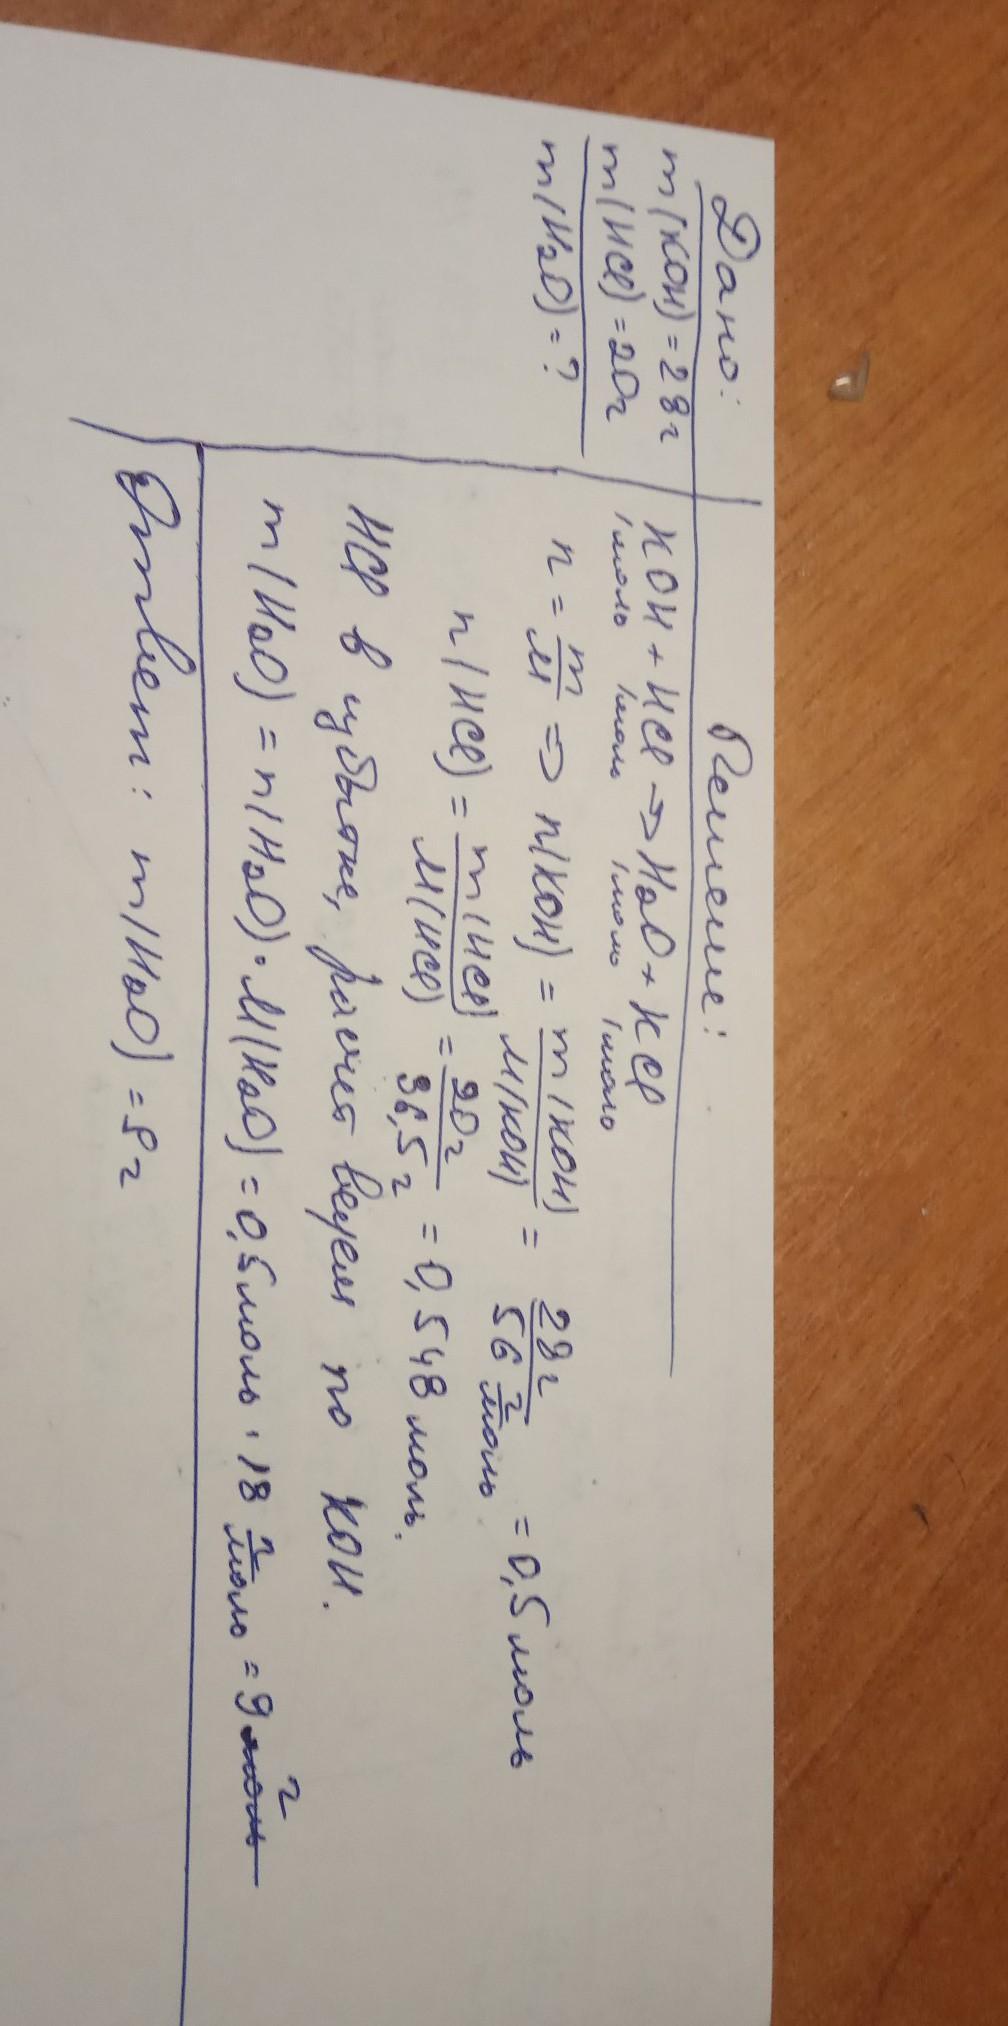 Дано:
m(KOH) = 28г
m(HCl) = 20г
m(H₂O) = ?
Решение:
KOH + HCl → H₂O + KCl
1моль 1моль 1моль 1моль
n = m/M => n(KOH) = m(KOH)/M(KOH) = 28г/56 г/моль = 0,5 моль
n(HCl) = m(HCl)/M(HCl) = 20г/36,5г = 0,548 моль.
HCl в избытке, расчет ведем по KOH.
m(H₂O) = n(H₂O)·M(H₂O) = 0,5 моль · 18 г/моль = 9 г
Ответ: m(H₂O) = 9 г